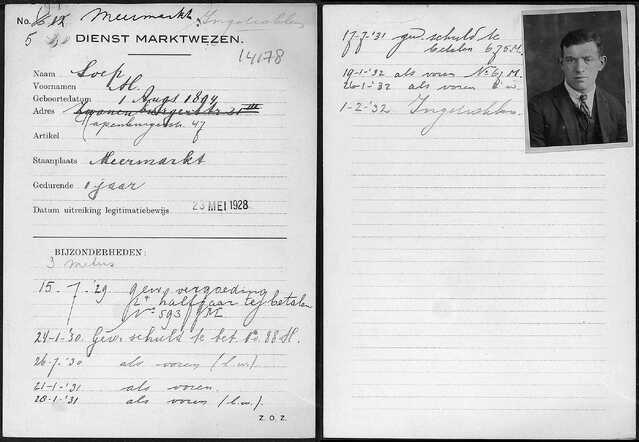 No. Meermarkt Ingetrokken
5
DIENST MARKTWEZEN.
14178
Naam Soep
Voornamen M.
Geboortedatum 1 Augs 1894
Adres Zwanenburgerstr 31
Rapenburgerstr. 47
Artikel
Staanplaats Meermarkt
Gedurende 1 jaar
Datum uitreiking legitimatiebewijs. 23 MEI 1928
BIJZONDERHEDEN:
3 meters
15-7-'29 gew. vergoeding
halfjaar te betalen
No 593 M.
24-1-'30. Gew. schuld te bet. No. 88 M.
26-7-'30 als voren (l.w.)
21-1-'31 als voren.
28-1-'31 als voren (l.w.)
Z.O.Z.
17-7-'31 gew. schuld te
betalen 675 M.
19-1-'32 als voren No 61 M.
26-1-'32 als voren
1-2-'32 Ingetrokken.